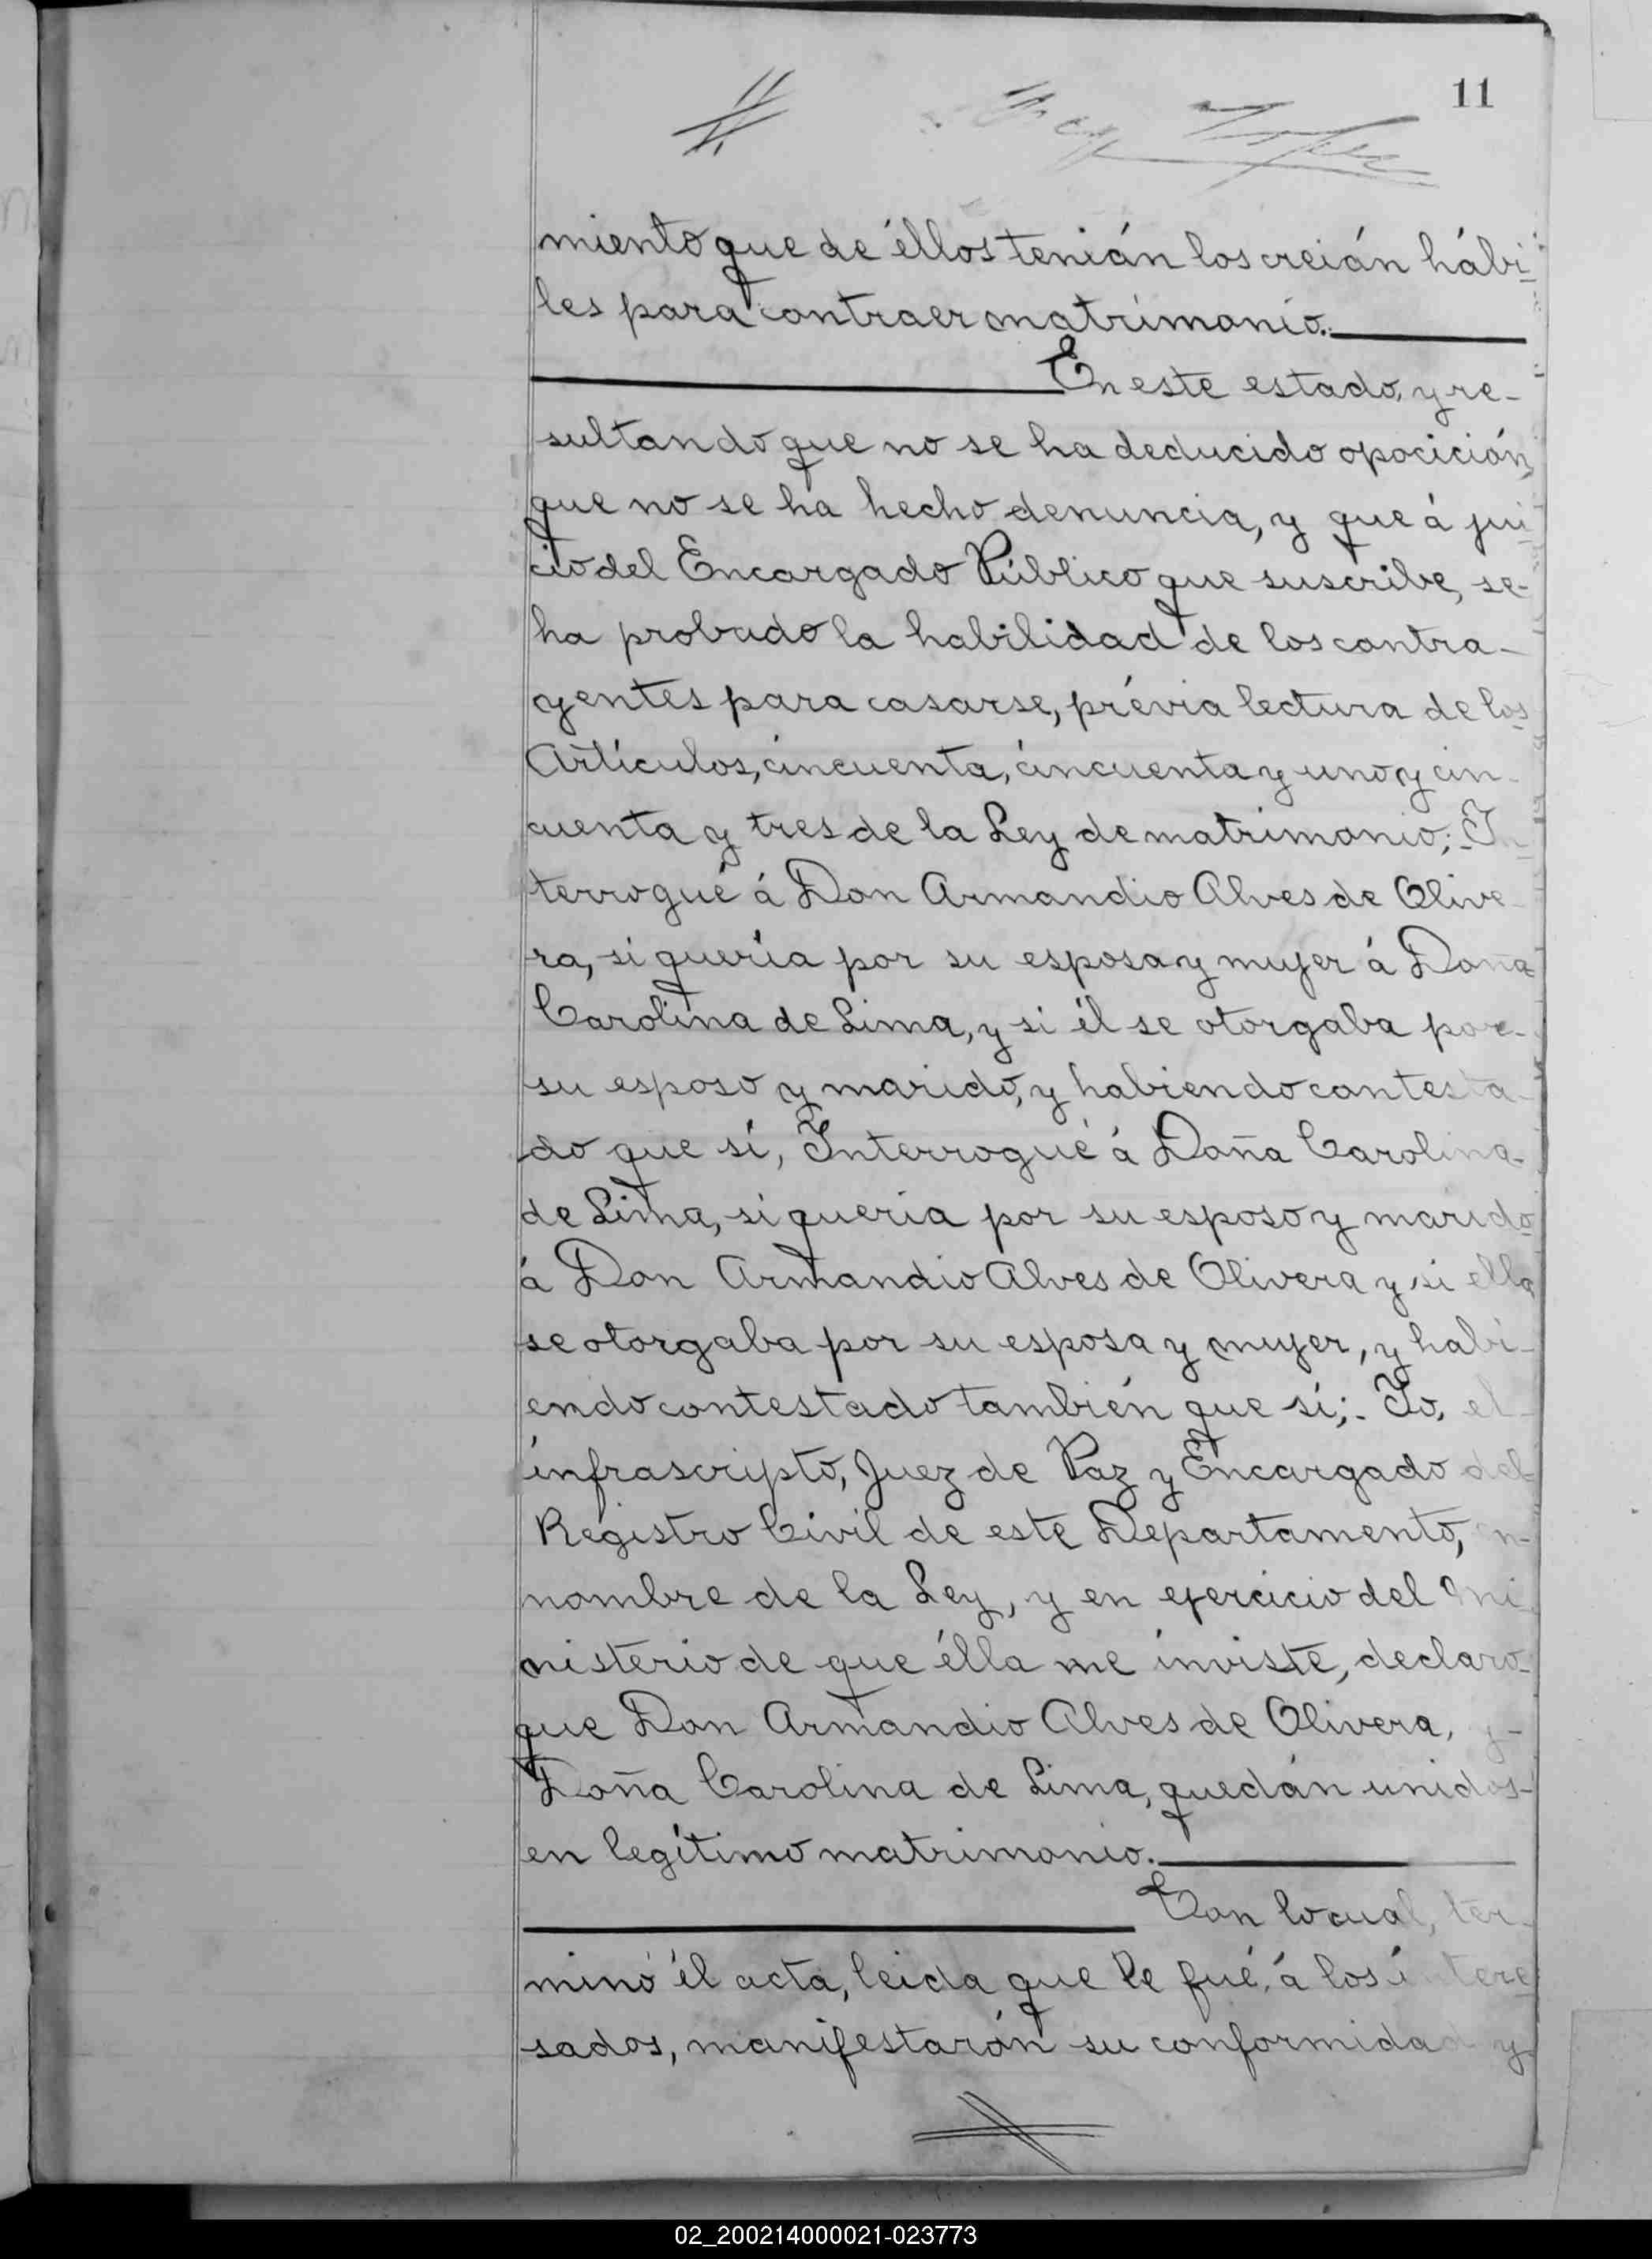 11
miento que de éllos tenián los creián hábi-
les para contraer matrimonio.
En este estado, y re-
sultando que no se ha deducido opocición,
que no se ha hecho denuncia, y que á jui-
cio del Encargado Público que suscribe, se-
ha probado la habilidad de los contra-
yentes para casarse, prévia lectura de los
Artículos, cincuenta, cincuenta y uno y cin-
cuenta y tres de la Ley de matrimonio; In-
terrogué á Don Armandio Alves de Olive-
ra, si quería por su esposa y mujer á Doña
Carolina de Lima, y si él se otorgaba por-
su esposo y marido, y habiendo contesta-
do que sí, Interrogué á Doña Carolina-
de Lima, si quería por su esposo y marido
á Don Armandio Alves de Olivera y si ella
se otorgaba por su esposa y mujer, y habi-
endo contestado también que sí;. Yo, el-
infrascripto, Juez de Paz y Encargado del-
Registro Civil de este Departamento, en-
nombre de la Ley, y en ejercicio del Mi-
nisterio de que élla me inviste, declaro-
que Don Armandio Alves de Olivera, y-
Doña Carolina de Lima, quedán unidos-
en legítimo matrimonio.
Con lo cual, ter-
minó él acta, leida que le fué, á los intere-
sados, manifestarón su conformidad y
02_200214000021-023773